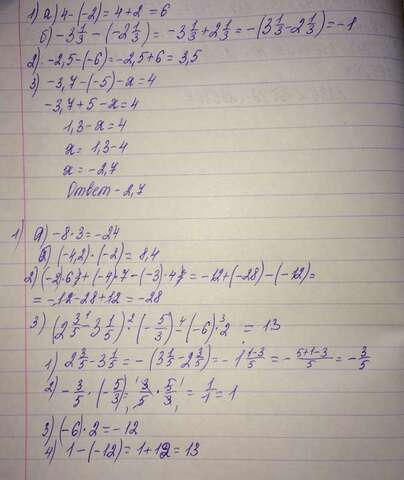 1) а) 4 - (-2) = 4 + 2 = 6
б) -3 1/3 - (-2 1/3) = -3 1/3 + 2 1/3 = -(3 1/3 - 2 1/3) = -1
2) -2,5 - (-6) = -2,5 + 6 = 3,5
3) -3,7 - (-5) - x = 4
-3,7 + 5 - x = 4
1,3 - x = 4
x = 1,3 - 4
x = -2,7
Ответ -2,7
1) а) -8 · 3 = -24
б) (-4,2) · (-2) = 8,4
2) (-2) · 6 + (-4) · 7 - (-3) · 4 = -12 + (-28) - (-12) =
= -12 - 28 + 12 = -28
3) (2 3/5 -¹ 3 1/5) ·² (-5/3) -⁴ (-6) ·³ 2 = 13
1) 2 3/5 - 3 1/5 = -(3 1/5 - 2 3/5) = -1 (1-3)/5 = -(5+1-3)/5 = -3/5
2) -3/5 · (-5/3) = 3/5 · 5/3 = 1/1 = 1
3) (-6) · 2 = -12
4) 1 - (-12) = 1 + 12 = 13